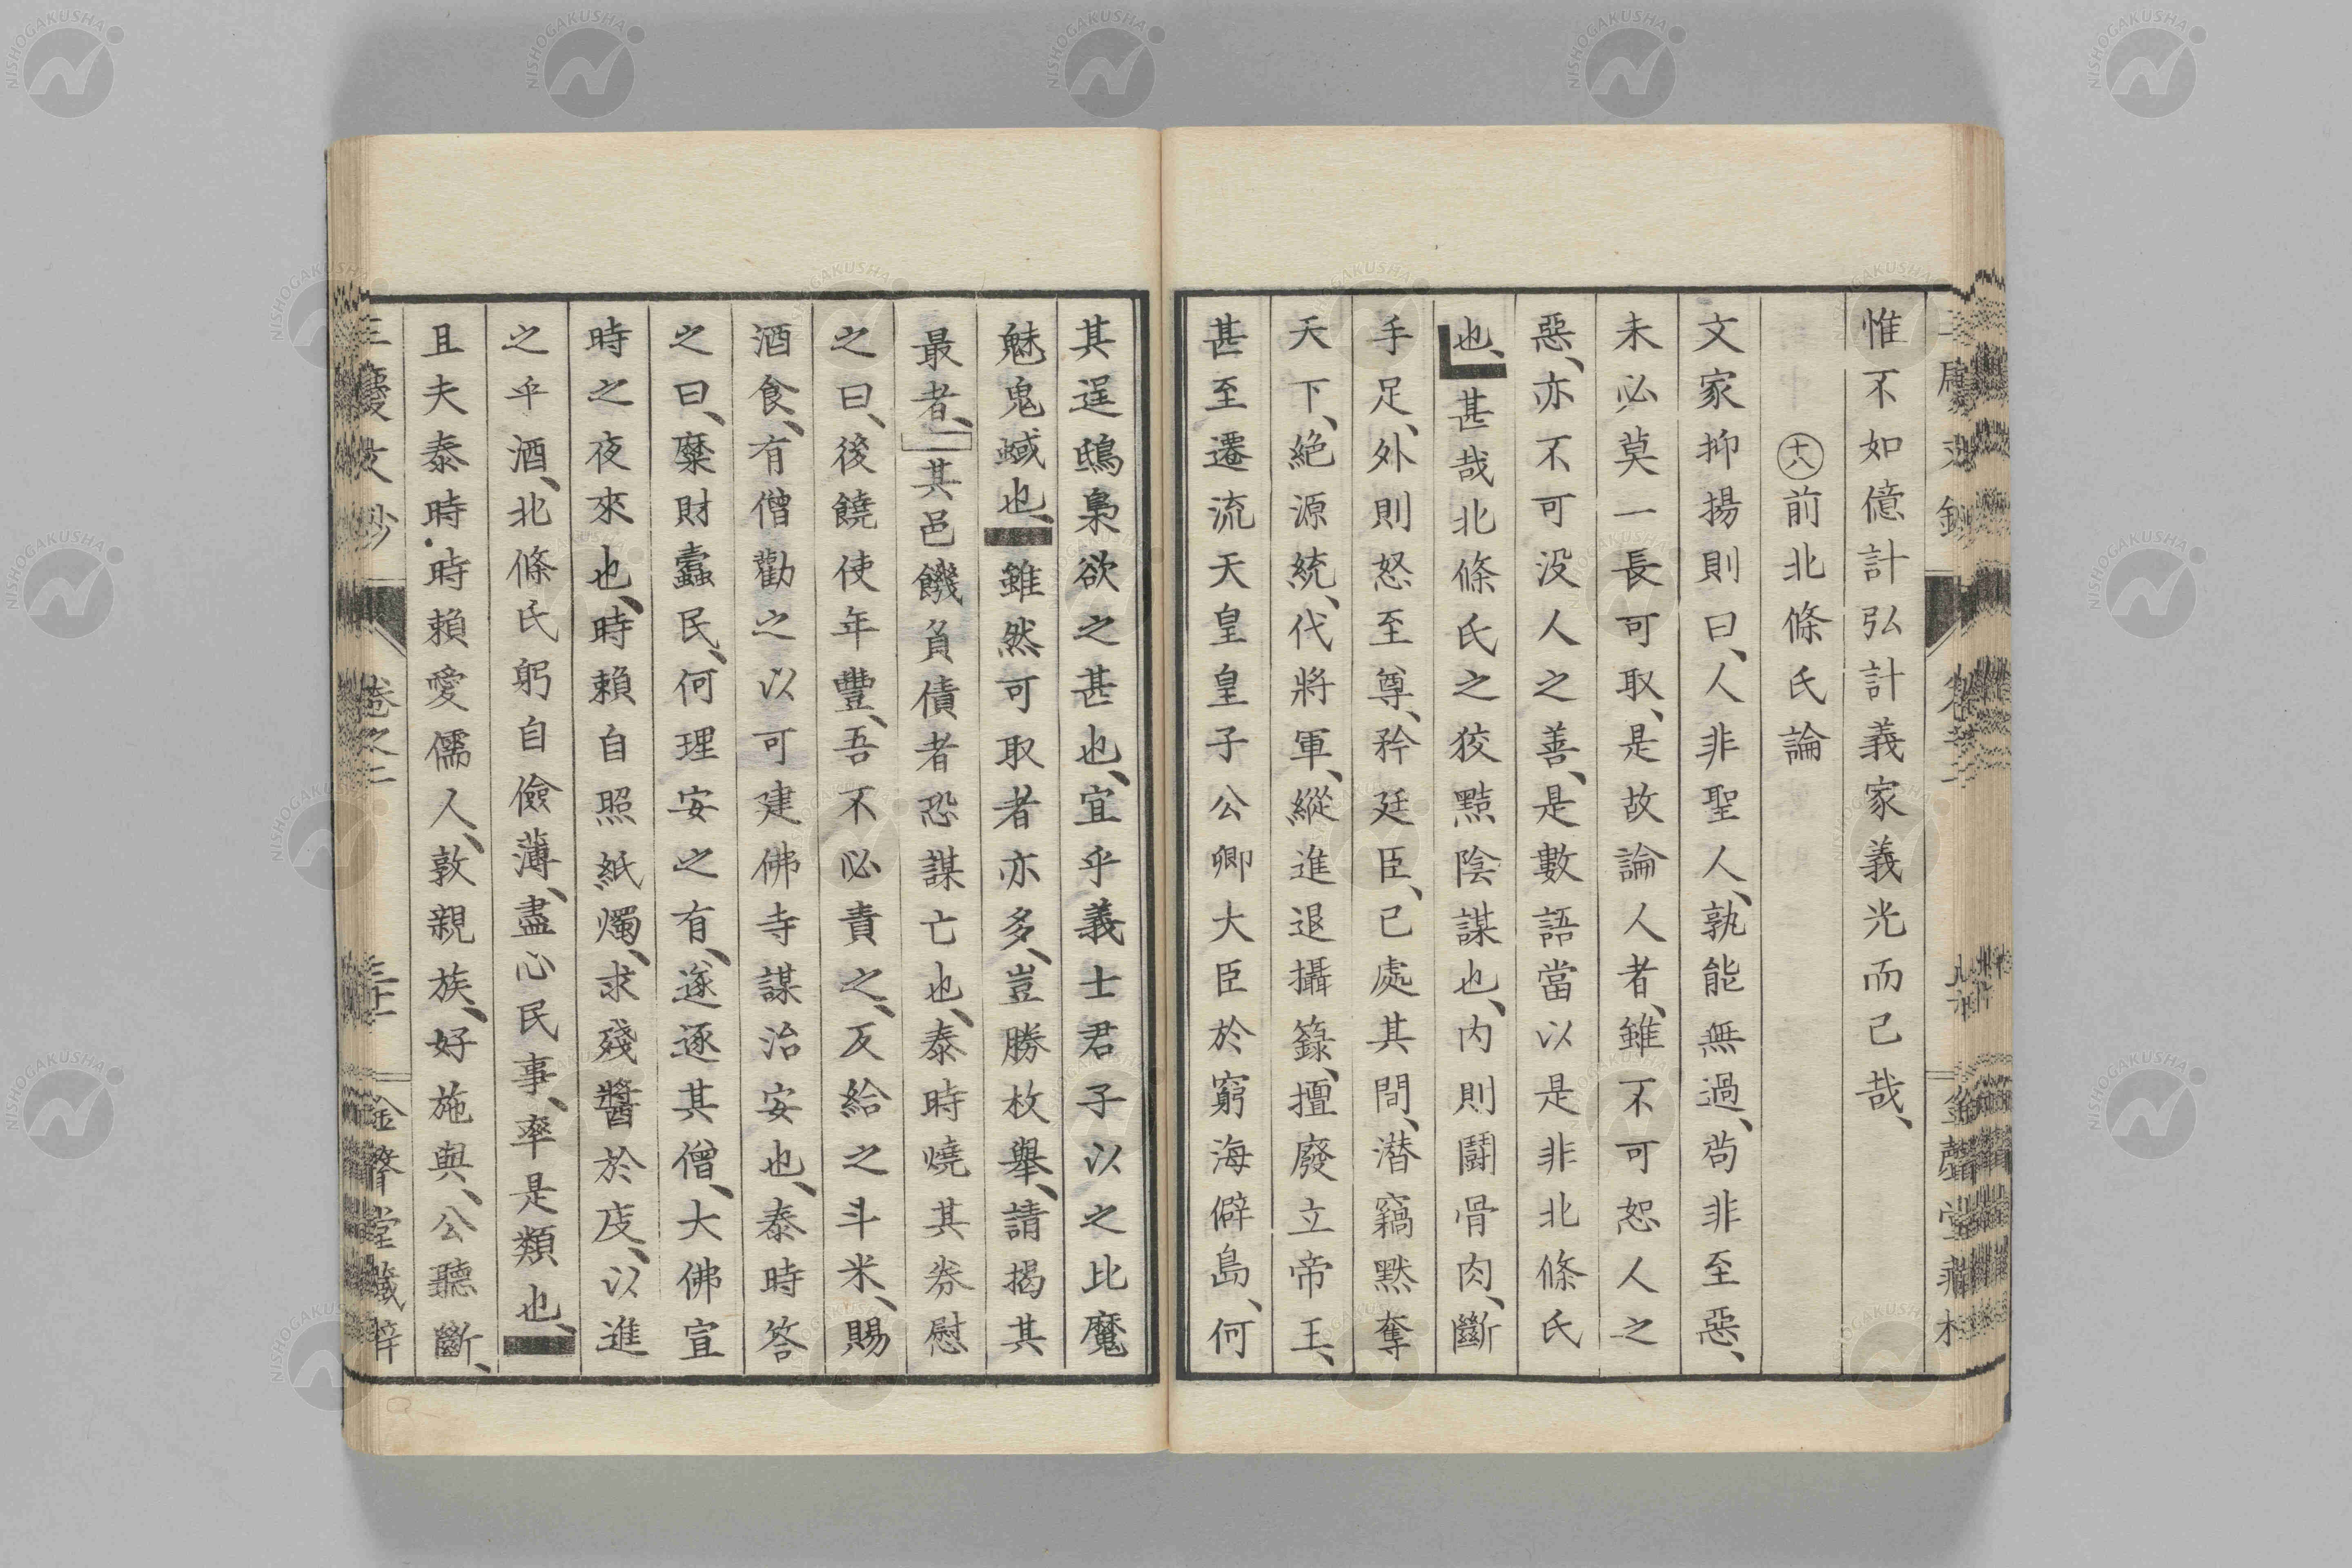 惟不如億計弘計義家義光而已哉、
十八前北條氏論
文家抑揚則曰、人非聖人、孰能無過、苟非至惡、
未必莫一長可取、是故論人者、雖不可恕人之
惡、亦不可没人之善、是數語當以是非北條氏
也、甚哉北條氏之狡黠陰謀也、内則鬪骨肉、斷
手足、外則怒至尊、矜廷臣、已處其間、潜竊黙奪
天下、絕源統、代將軍、縱進退攝籙、擅廢立帝王、
甚至遷流天皇皇子公卿大臣於窮海僻島、何
其逞鴟梟欲之甚也、宜乎義士君子以之比魔
魅鬼蜮也、雖然可取者亦多、豈勝枚舉、請揭其
最者、其邑饑負債者恐謀亡也、泰時燒其券慰
之曰、後饒使年豐、吾不必責之、反給之斗米、賜
酒食、有僧勸之以可建佛寺謀治安也、泰時答
之曰、糜財蠹民、何理安之有、遂逐其僧、大佛宣
時之夜來也、時賴自照紙燭、求殘醬於庋、以進
之乎酒、北條氏躬自儉薄、盡心民事、率是類也、
且夫泰時.時賴愛儒人、敦親族、好施與、公聽斷、
三慶文鈔
卷之二
三十
金聲堂藏梓
NISHOGAKUSHA